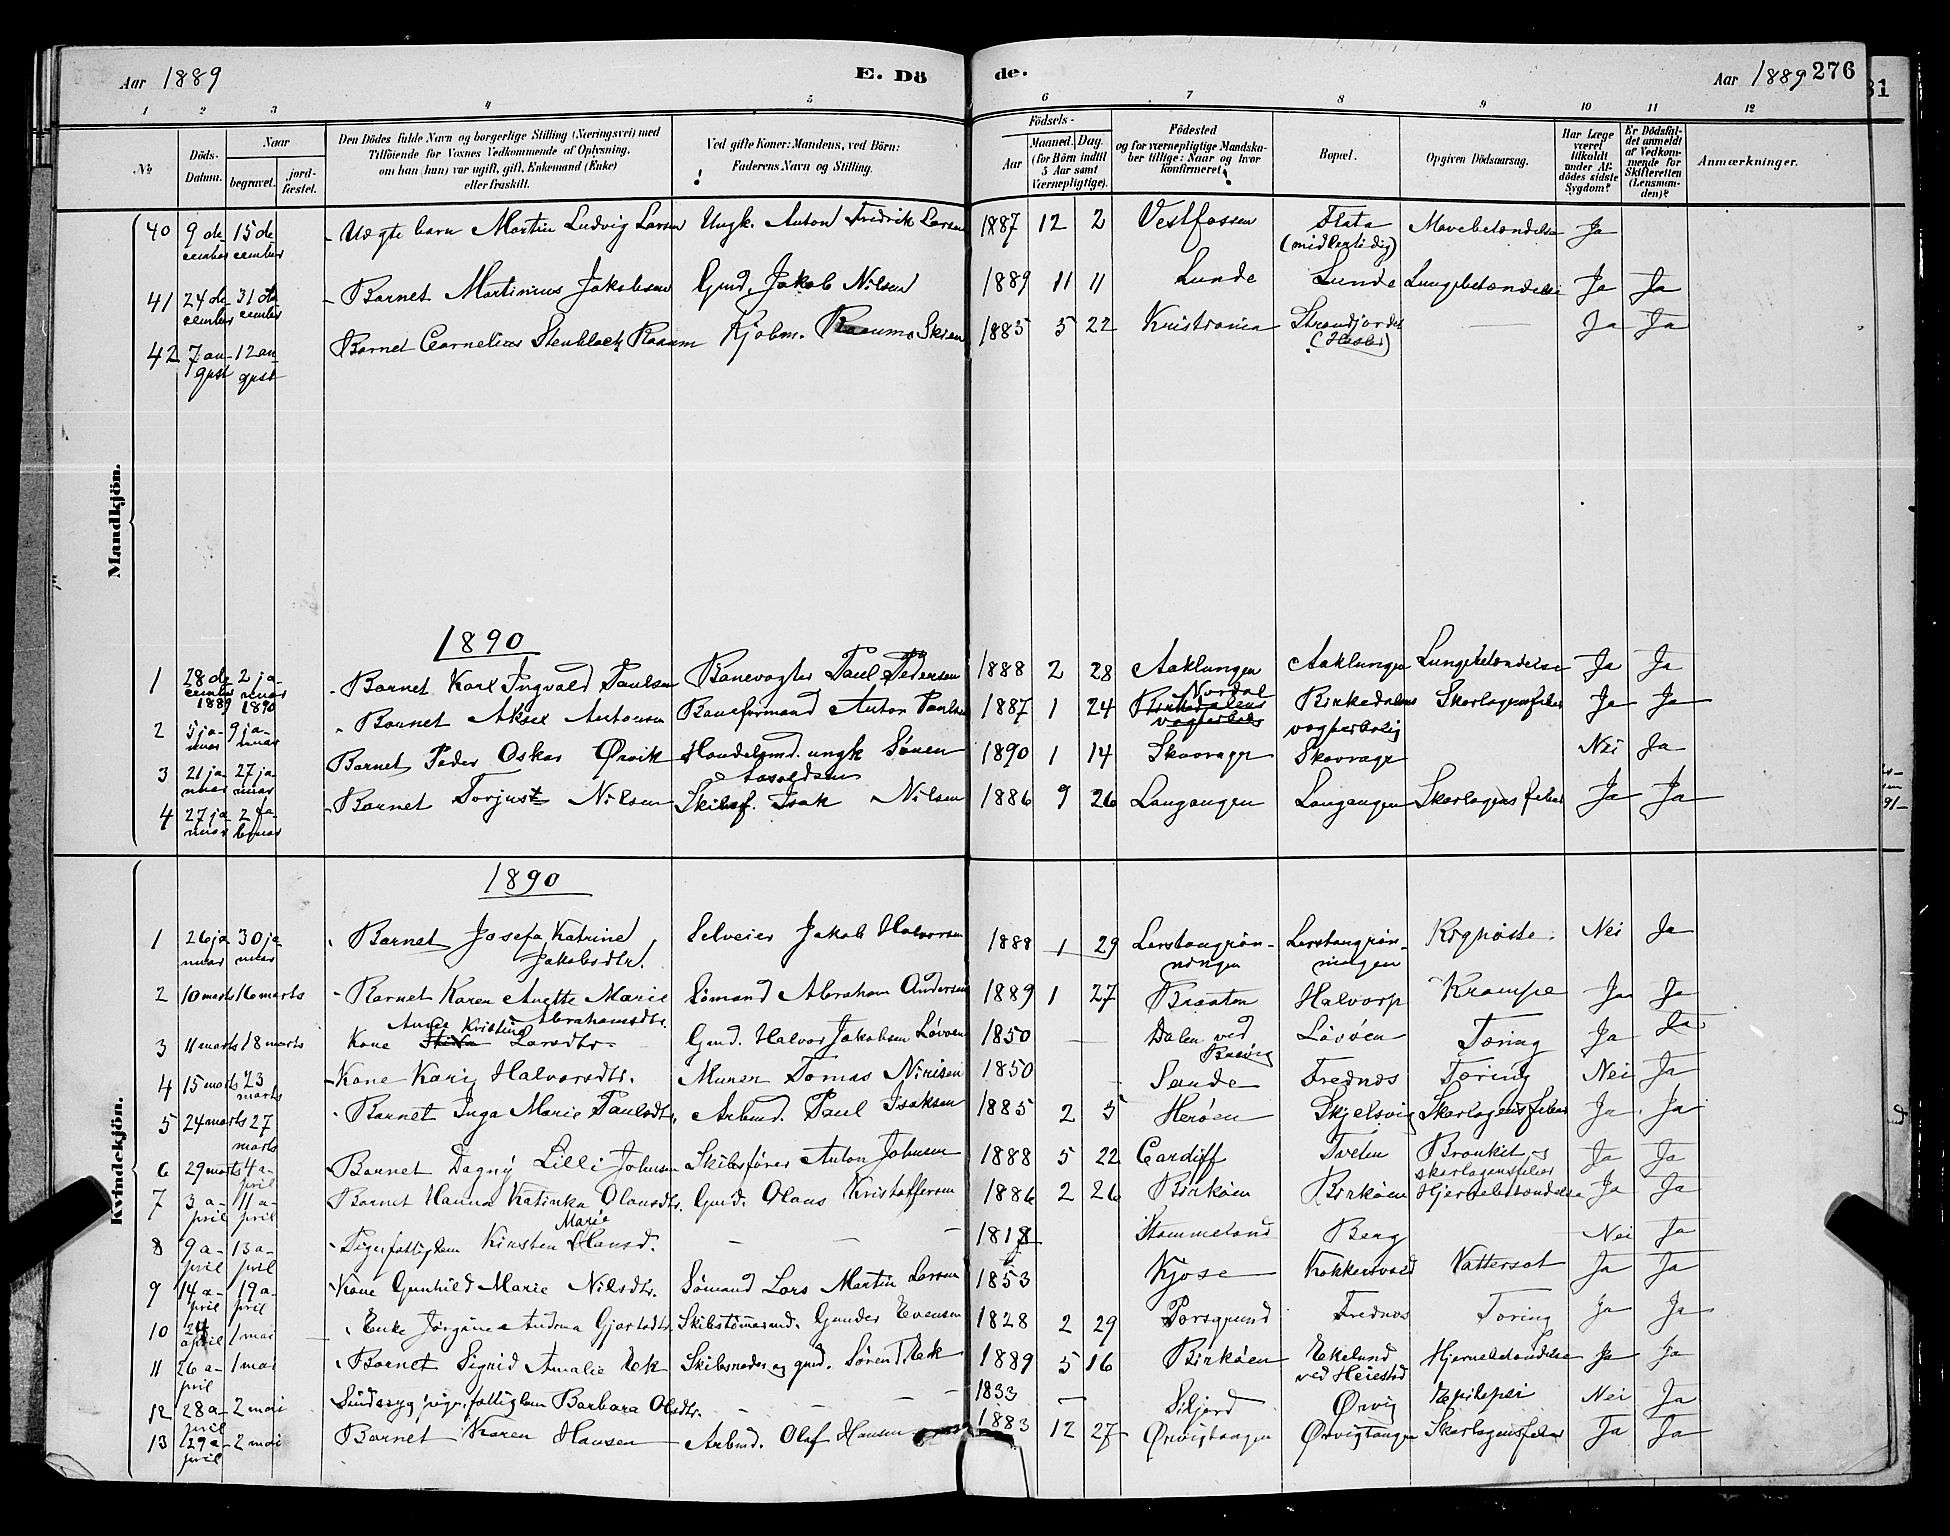 Aar 1889 E. Dö de. Aar 1889 276
1 2 3 4 5 6 7 8 9 10 11 12
No. Döds-Datum. Naar begravet. jord-fæstet. Den Dödes fulde Navn og borgerlige Stilling (Næringsvei) med Tilföiende for Voxnes Vedkommende af Oplysning, om han (hun) var ugift, gift, Enkemand (Enke) eller fraskilt. Ved gifte Koner: Mandens, ved Börn: Faderens Navn og Stilling. Födsels- Aar Maaned. Dag. (for Börn indtil 5 Aar samt Værnepligtige). Födested og for værnepligtige Mandskaber tillige: Naar og hvor konfirmeret. Bopæl. Opgiven Dödsaarsag. Har Læge været tilkaldt under Afdödes sidste Sygdom? Er Dödsfaldet anmeldt af Vedkommende for Skifteretten (Lensmanden)? Anmærkninger.
Mandkjön.
40 9 december 15 december Uægte barn Martin Ludvig Larsen Ungk. Anton Fredrik Larsen 1887 12 2 Vestfossen Flata (midlertidig) Mavebetændelse Ja
41 24 december 31 december Barnet Martinius Jakobsen Gmd. Jakob Nilsen 1889 11 11 Lunde Lunde Lungebetændelse Ja Ja
42 7 august 12 august Barnet Cornelius Stenbloch Raaum Kjøbm. Raaum Skien 1885 5 22 Kristiania Strandjordet Ja Ja
1890
1 28 december 1889 2 januar 1890 Barnet Karl Ingvald Paulsen Banevogter Paul Pedersen 1888 2 28 Aaklungen Aaklungen Lungebetændelse Ja Ja
2 5 januar 9 januar Barnet Aksel Antonsen Baneformand Anton Paulsen 1887 1 24 Nordal Birkedalens vogterbolig Skarlagensfeber Ja Ja
3 21 januar 27 januar Barnet Peder Oskar Ørvik Handelsmd. ungk Sønen 1890 1 14 Skavrager Skavrager Nei Ja
4 27 januar 2 februar Barnet Torjus Nilsen Skibsf. Isak Nilsen 1886 9 26 Langangen Langangen Skarlagensfeber Ja Ja
Kvindekjön.
1890
1 26 januar 30 januar Barnet Josefa Katrine Jakobsdtr. Selveier Jakob Halvorsen 1888 1 29 Lerstangrønningen Lerstangrønningen Kighoste Nei Ja
2 10 marts 16 marts Barnet Karen Anette Marie Abrahamsdtr. Sømand Abraham Andersen 1889 1 27 Braaten Halvorp Krampe Ja Ja
3 11 marts 18 marts Kone Anne Kristine Larsdtr. Gmd. Halvor Jakobsen Løvøen 1850 Dalen ved Brevig Løvøen Tæring Ja Ja
4 15 marts 23 marts Kone Kari Halvorsdtr. Murer Tomas Nirisen 1850 Sande Frednæs Tæring Nei Ja
5 24 marts 27 marts Barnet Inga Marie Paulsdtr. Arbmd. Paul Isaksen 1885 2 5 Herøen Skjelsvig Skarlagensfeber Ja Ja
6 29 marts 4 april Barnet Dagny Lilli Johnsen Skibsfører Anton Johnsen 1888 5 22 Cardiff Tveten Bronkit og skarlagensfeber Ja Ja
7 3 april 11 april Barnet Hanna Katinka Olausdtr. Gmd. Olaus Kristoffersen 1886 2 26 Birkøen Birkøen Hjernebetændelse Ja Ja
8 9 april 13 april Pigefattiglem Kirsten Marie Hansd. 1818 Stammeland Berg Nei Ja
9 14 april 19 april Kone Gunhild Marie Nilsdtr. Sømand Lars Martin Larsen 1853 Kjose Kokkersvold Vattersot Ja Ja
10 24 april 1 mai Enke Jørgine Andrea Gjertsdtr. Skibstømmermd. Gunder Evensen 1828 2 29 Porsgrund Frednæs Tæring Ja Ja
11 26 april 1 mai Barnet Sigrid Amalie Eek Skibsreder og gmd. Søren Eek 1889 5 16 Birkøen Ekelund ved Heistad Hjernebetændelse Ja Ja
12 28 april 2 mai Sindssyg pige, fattiglem Barbara Olsdtr. 1833 Siljord Ørvig Epilepsi Nei Ja
13 29 april 2 mai Barnet Karen Hansen Arbmd. Olaf Hansen 1883 12 27 Ørvigtangen Ørvigtangen Skarlagensfeber Ja Ja